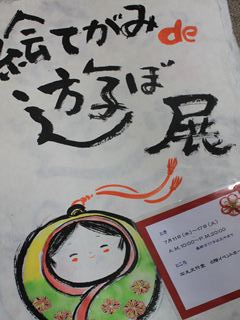 絵てがみde
遊ぼ
展
とき
7月11日(水)～17日(火)
A.M.10:00～P.M.20:00
ところ